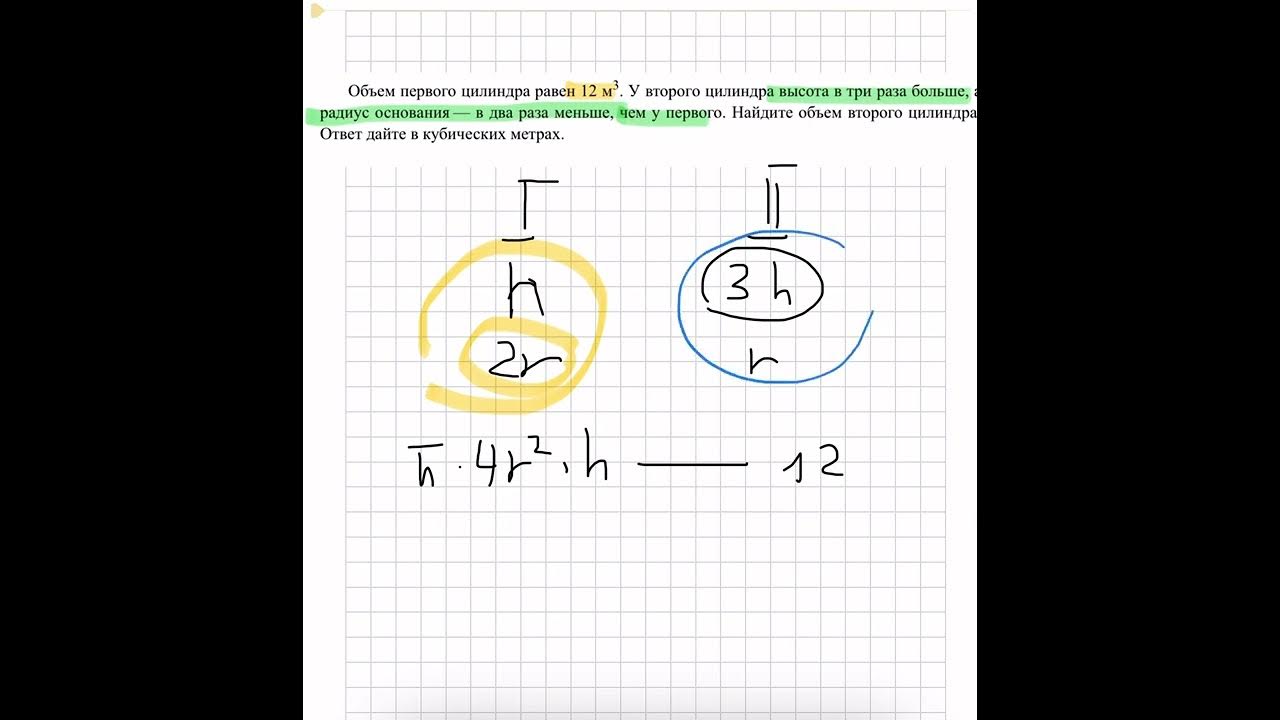 Объем первого цилиндра равен 12 м³. У второго цилиндра высота в три раза больше, а
радиус основания — в два раза меньше, чем у первого. Найдите объем второго цилиндра
Ответ дайте в кубических метрах.
I II
h 3h
2r r
π · 4r² · h — 12